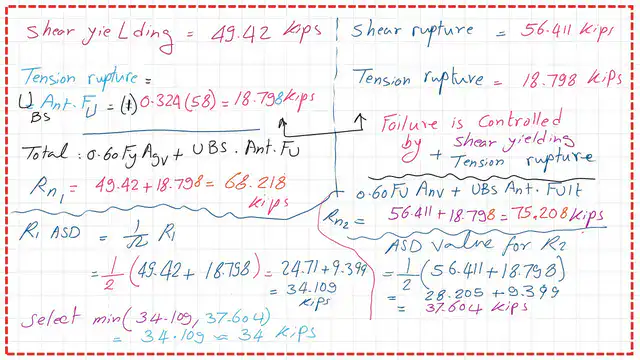 Shear yieLding = 49.42 kips
Tension rupture =
UBS Ant. FU = (1) 0.324(58) = 18.798 kips
Total: 0.60 Fy Agv + UBS. Ant. FU
Rn1 = 49.42 + 18.798 = 68.218 kips
R1 ASD = 1/Ω R1
= 1/2 (49.42 + 18.798) = 24.71 + 9.399
= 34.109 kips
select min(34.109, 37.604)
= 34.109 ≈ 34 kips
Shear rupture = 56.411 kips
Tension rupture = 18.798 kips
Failure is controlled
by shear yielding
+ Tension rupture
0.60 FU Anv + UBS Ant. FUlt
Rn2 = 56.411 + 18.798 = 75.208 kips
ASD Value for R2
= 1/2 (56.411 + 18.798)
= 28.205 + 9.399
= 37.604 kips